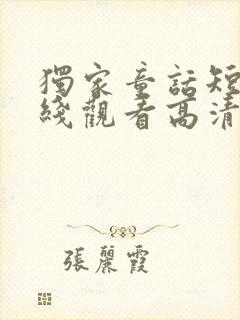 獨家童話短
綫觀看高清
張麗霞